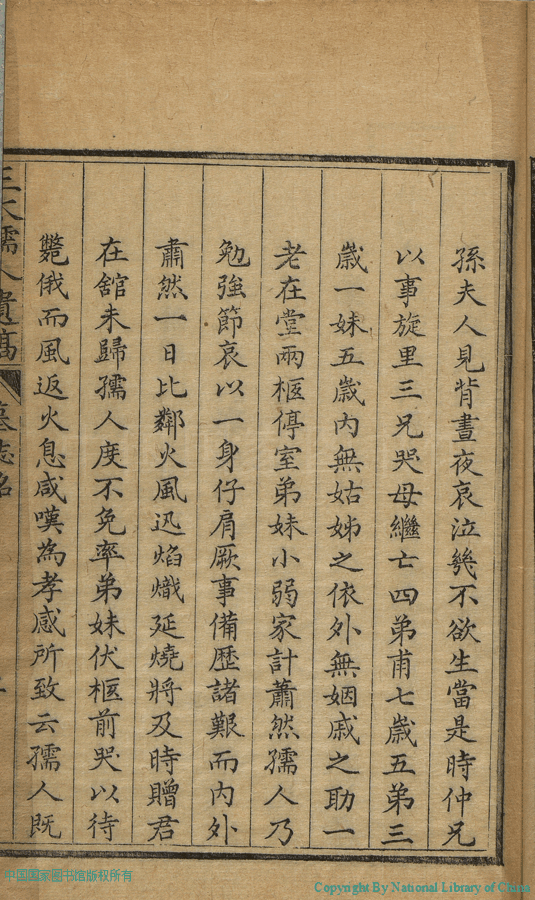 孫夫人見背晝夜哀泣幾不欲生當是時仲兄
以事旋里三兄哭母繼亡四弟甫七歲五弟三
歲一妹五歲內無姑姊之依外無姻戚之助一
老在堂兩柩停室弟妹小弱家計蕭然孺人乃
勉強節哀以一身仔肩厥事備歷諸艱而內外
肅然一日比鄰火風迅焰熾延燒將及時贈君
在舘未歸孺人度不免率弟妹伏柩前哭以待
斃俄而風返火息咸嘆為孝感所致云孺人既
孺人遺稿
墓志銘
中国国家图书馆版权所有
Copyright By National Library of China